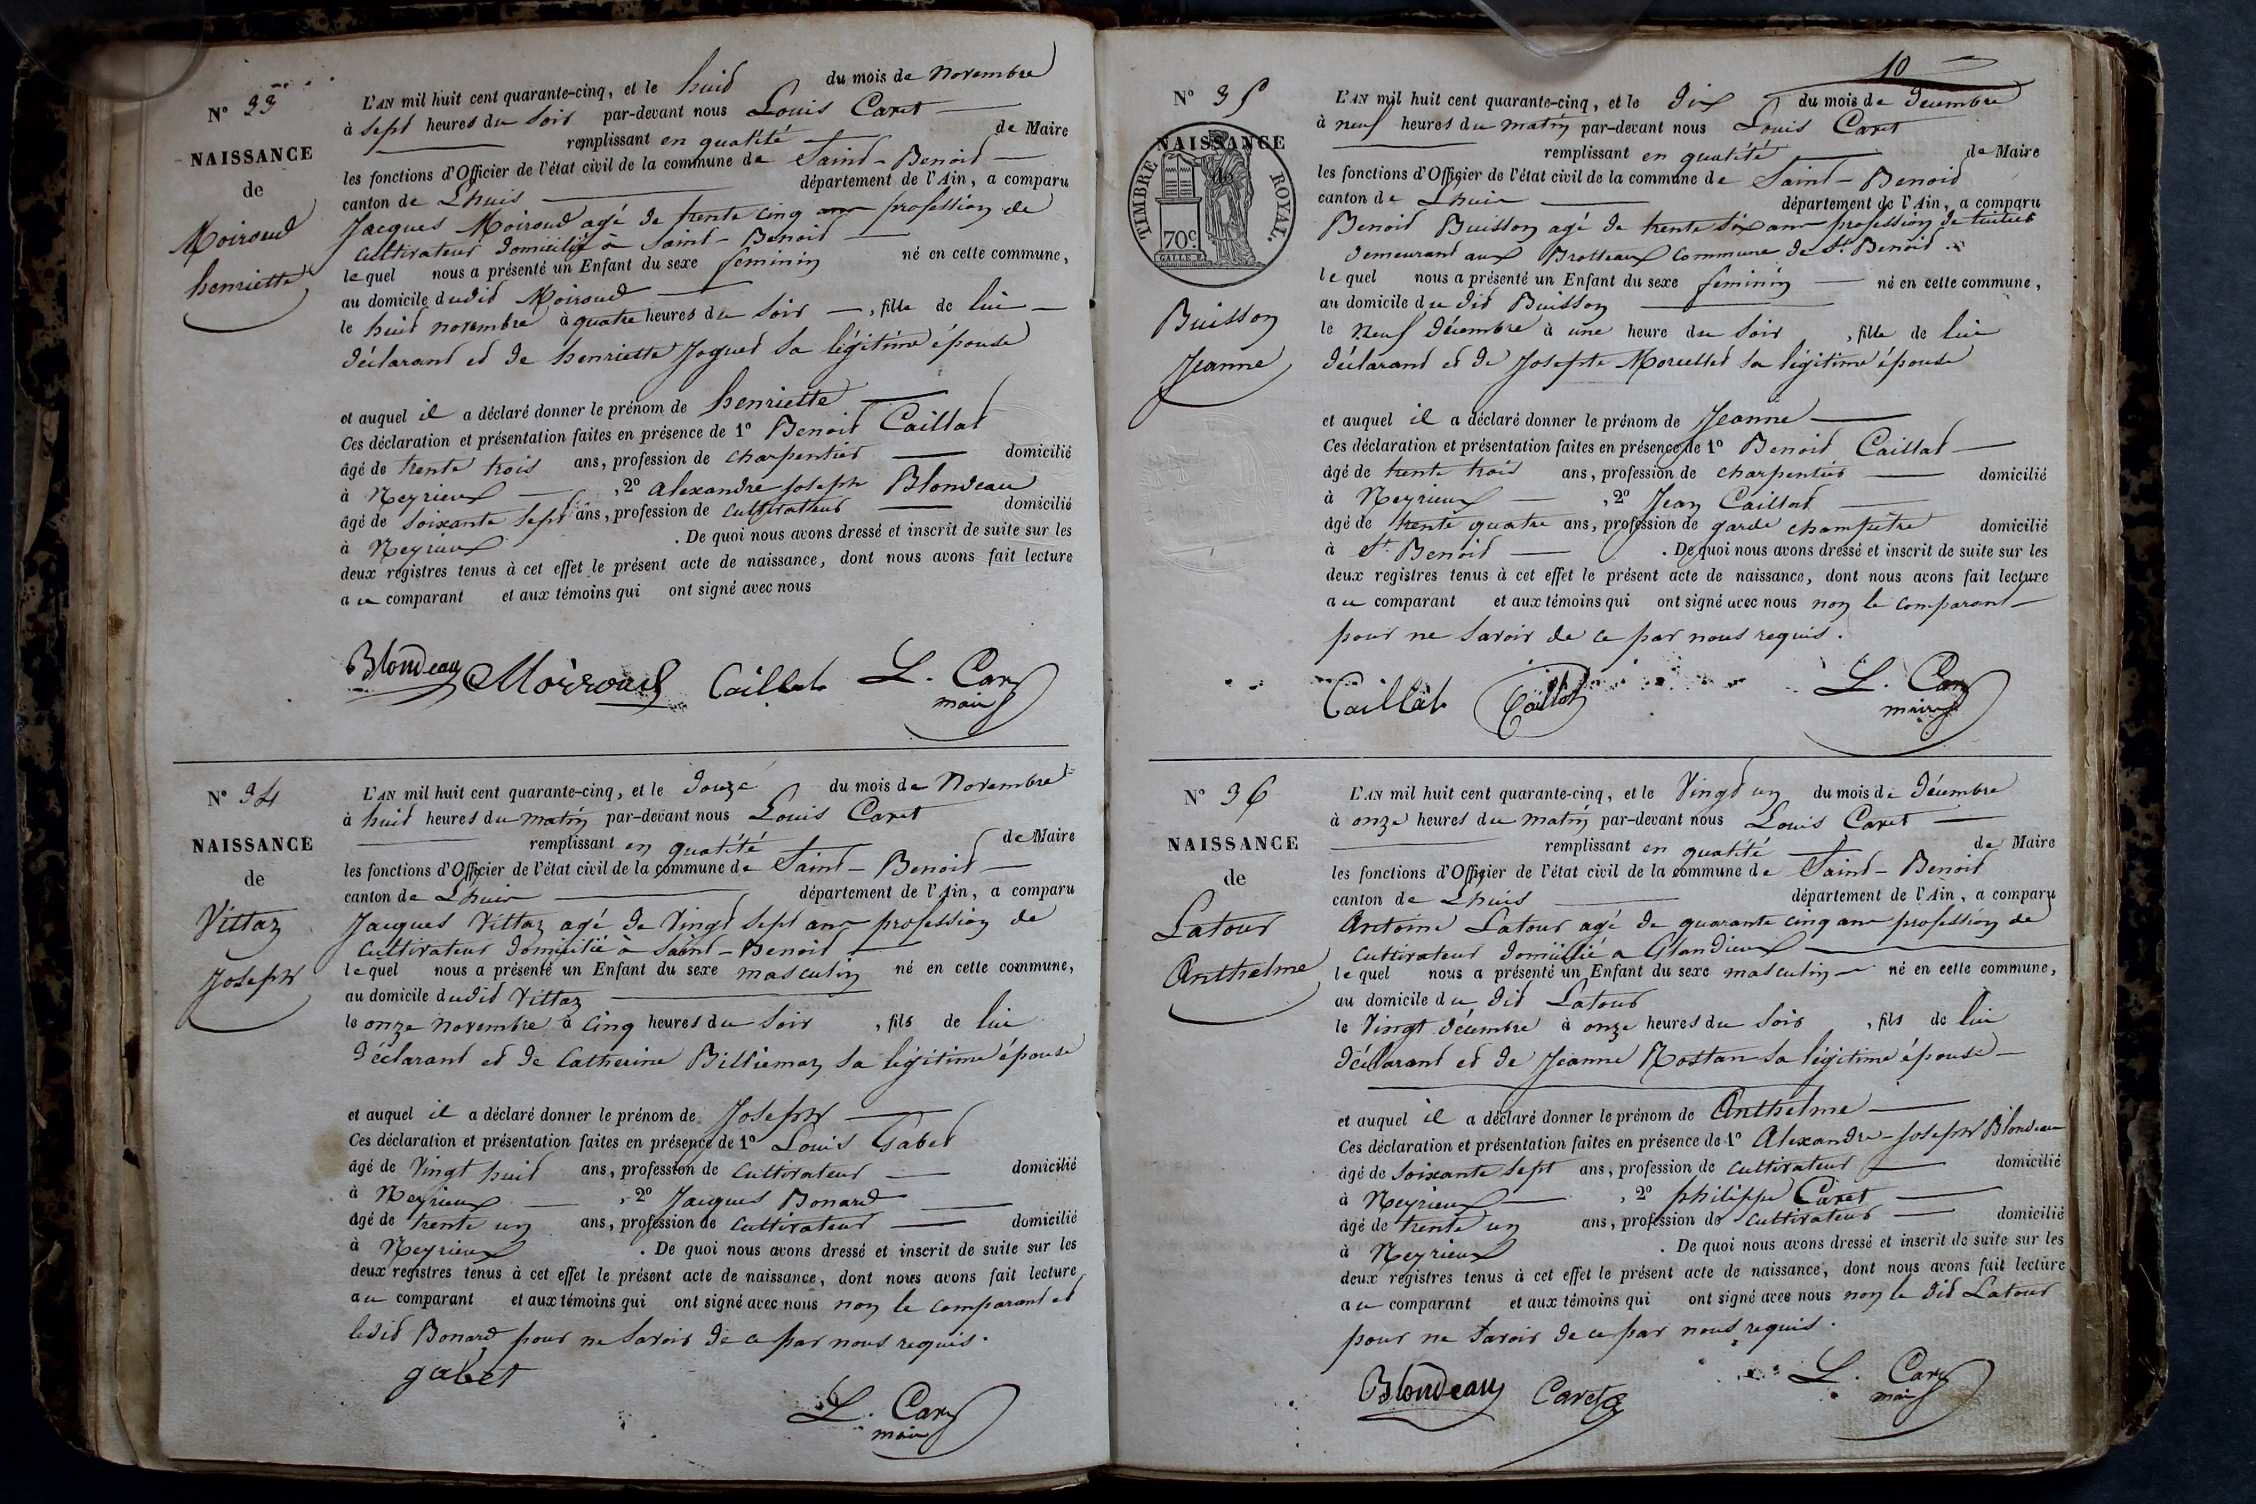 N° 33
NAISSANCE
de
Moiroud
henriette
L'AN mil huit cent quarante-cinq, et le huit du mois de novembre
à sept heures du soir par-devant nous Louis Caret
remplissant en qualité de Maire
les fonctions d'Officier de l'état civil de la commune de Saint-Benoit
canton de Lhuis département de l'Ain, a comparu
Jacques Moiroud agé de trente cinq ans profession de
cultivateur domicilié à Saint-Benoit
lequel nous a présenté un Enfant du sexe féminin né en cette commune,
au domicile dudit Moiroud
le huit novembre à quatre heures du soir, fille de lui
déclarant et de henriette Joguet sa légitime épouse
et auquel il a déclaré donner le prénom de henriette
Ces déclaration et présentation faites en présence de 1° Benoit Caillat
âgé de trente trois ans, profession de charpentier domicilié
à Neyrieux, 2° alexandre joseph Blondeau
âgé de soixante sept ans, profession de cultivateur domicilié
à Neyrieux. De quoi nous avons dressé et inscrit de suite sur les
deux registres tenus à cet effet le présent acte de naissance, dont nous avons fait lecture
au comparant et aux témoins qui ont signé avec nous
Blondeau Moiroud Caillat L. Caret
maire
N° 34
NAISSANCE
de
Vittaz
Joseph
L'AN mil huit cent quarante-cinq, et le douze du mois de Novembre
à huit heures du matin par-devant nous Louis Caret
remplissant en qualité de Maire
les fonctions d'Officier de l'état civil de la commune de Saint-Benoit
canton de Lhuis département de l'Ain, a comparu
Jacques Vittaz agé de vingt sept ans profession de
cultivateur domicilié à Saint-Benoit
lequel nous a présenté un Enfant du sexe masculin né en cette commune,
au domicile dudit Vittaz
le onze novembre à cinq heures du soir, fils de lui
déclarant et de Catherine Billiemaz sa légitime épouse
et auquel il a déclaré donner le prénom de Joseph
Ces déclaration et présentation faites en présence de 1° Louis Gabet
âgé de vingt huit ans, profession de cultivateur domicilié
à Neyrieux, 2° Jacques Bonard
âgé de trente un ans, profession de cultivateur domicilié
à Neyrieux. De quoi nous avons dressé et inscrit de suite sur les
deux registres tenus à cet effet le présent acte de naissance, dont nous avons fait lecture
au comparant et aux témoins qui ont signé avec nous non le comparant et
ledit Bonard pour ne savoir de ce par nous requis.
gabet
L. Caret
maire
10
N° 35
NAISSANCE
de
TIMBRE ROYAL.
70c
Buisson
Jeanne
L'AN mil huit cent quarante-cinq, et le dix du mois de décembre
à neuf heures du matin par-devant nous Louis Caret
remplissant en qualité de Maire
les fonctions d'Officier de l'état civil de la commune de Saint-Benoit
canton de Lhuis département de l'Ain, a comparu
Benoit Buisson agé de trente six ans profession de
demeurant aux Brotteaux commune de St Benoit
lequel nous a présenté un Enfant du sexe féminin né en cette commune,
au domicile du dit Buisson
le neuf décembre à une heure du soir, fille de lui
déclarant et de Josephte Morcellet sa légitime épouse
et auquel il a déclaré donner le prénom de Jeanne
Ces déclaration et présentation faites en présence de 1° Benoit Caillat
âgé de trente trois ans, profession de charpentier domicilié
à Neyrieux, 2° Jean Caillat
âgé de trente quatre ans, profession de garde champêtre domicilié
à St Benoit. De quoi nous avons dressé et inscrit de suite sur les
deux registres tenus à cet effet le présent acte de naissance, dont nous avons fait lecture
au comparant et aux témoins qui ont signé avec nous non le comparant
pour ne savoir de ce par nous requis.
Caillat Caillat L. Caret
maire
N° 36
NAISSANCE
de
Latour
Anthelme
L'AN mil huit cent quarante-cinq, et le vingt un du mois de décembre
à onze heures du matin par-devant nous Louis Caret
remplissant en qualité de Maire
les fonctions d'Officier de l'état civil de la commune de Saint-Benoit
canton de Lhuis département de l'Ain, a comparu
Antoine Latour agé de quarante cinq ans profession de
cultivateur domicilié a Glandieux
lequel nous a présenté un Enfant du sexe masculin né en cette commune,
au domicile du dit Latour
le vingt décembre à onze heures du soir, fils de lui
déclarant et de Jeanne Rostan sa légitime épouse
et auquel il a déclaré donner le prénom de Anthelme
Ces déclaration et présentation faites en présence de 1° Alexandre-joseph Blondeau
âgé de soixante sept ans, profession de cultivateur domicilié
à Neyrieux, 2° philippe Caret
âgé de trente un ans, profession de cultivateur domicilié
à Neyrieux. De quoi nous avons dressé et inscrit de suite sur les
deux registres tenus à cet effet le présent acte de naissance, dont nous avons fait lecture
au comparant et aux témoins qui ont signé avec nous non le dit Latour
pour ne savoir de ce par nous requis.
Blondeau Caret L. Caret
maire